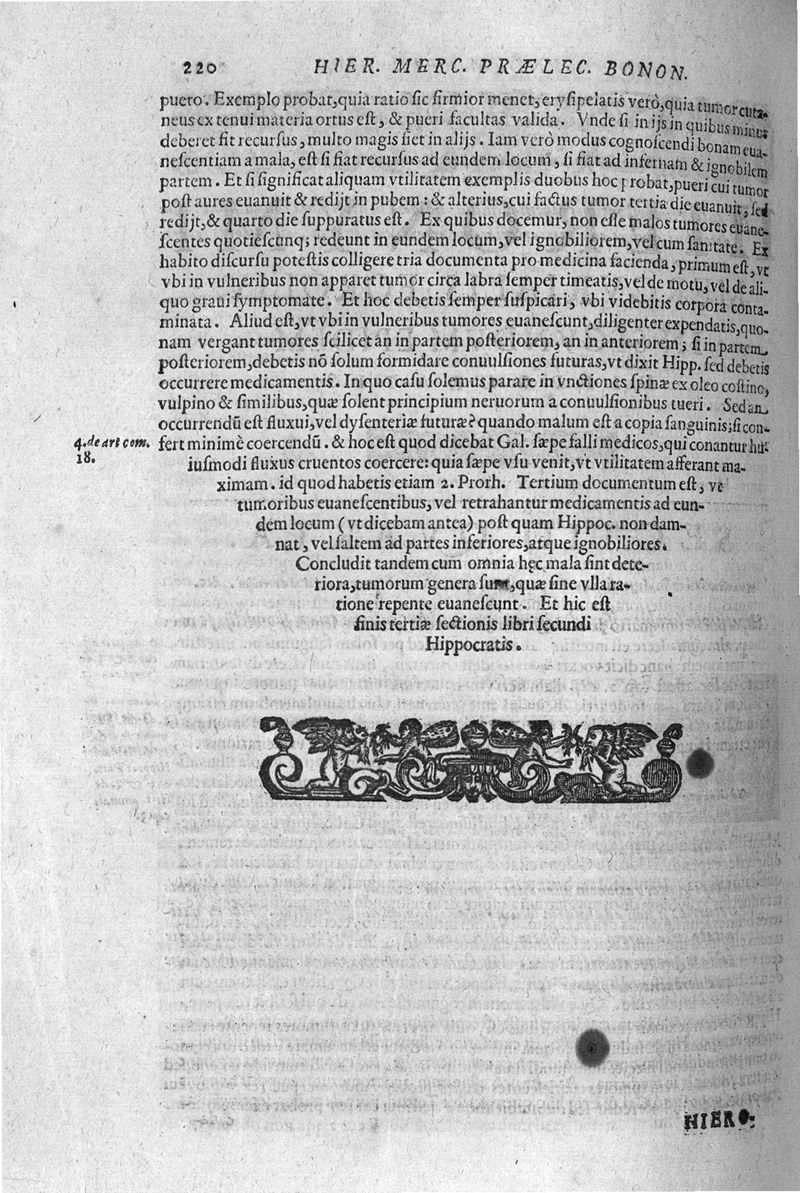 220 HIER. MERC. PRÆLEC. BONON.
puero. Exemplo probat, quia ratio sic firmior menet, erysipelatis verò, quia tumor cuta-
neus ex tenui materia ortus est, & pueri facultas valida. Vnde si in ijs in quibus minus
deberet fit recursus, multo magis fiet in alijs. Iam verò modus cognoscendi bonam eua-
nescentiam a mala, est si fiat recursus ad eundem locum, si fiat ad infernam & ignobilem
partem. Et si significat aliquam vtilitatem exemplis duobus hoc probat, pueri cui tumor
post aures euanuit & redijt in pubem: & alterius, cui factus tumor tertia die euanuit, sed
redijt, & quarto die suppuratus est. Ex quibus docemur, non esse malos tumores euane-
scentes quotiescunq; redeunt in eundem locum, vel ignobiliorem, vel cum sanitate. Ex
habito discursu potestis colligere tria documenta pro medicina facienda, primum est, vt
vbi in vulneribus non apparet tumor circa labra semper timeatis, vel de motu, vel de ali-
quo graui symptomate. Et hoc debetis semper suspicari, vbi videbitis corpora conta-
minata. Aliud est, vt vbi in vulneribus tumores euanescunt, diligenter expendatis, quo-
nam vergant tumores scilicet an in partem posteriorem, an in anteriorem; si in partem
posteriorem, debetis nō solum formidare conuulsiones futuras, vt dixit Hipp. sed debetis
occurrere medicamentis. In quo casu solemus parare in vnctiones spinæ ex oleo costino,
vulpino & similibus, quæ solent principium neruorum a conuulsionibus tueri. Sed an
occurrendū est fluxui, vel dysenteriæ futuræ? quando malum est a copia sanguinis; si con-
4. de art com. 18.
fert minimè coercendū. & hoc est quod dicebat Gal. sæpe falli medicos, qui conantur hu-
iusmodi fluxus cruentos coercere: quia sæpe vsu venit, vt vtilitatem afferant ma-
ximam. id quod habetis etiam 2. Prorh. Tertium documentum est, vt
tumoribus euanescentibus, vel retrahantur medicamentis ad eun-
dem locum (vt dicebam antea) post quam Hippoc. non dam-
nat, vel saltem ad partes inferiores, atque ignobiliores.
Concludit tandem cum omnia hęc mala sint dete-
riora, tumorum genera sunt, quæ sine vlla ra-
tione repente euanescunt. Et hic est
finis tertiæ sectionis libri secundi
Hippocratis.
HIERO-